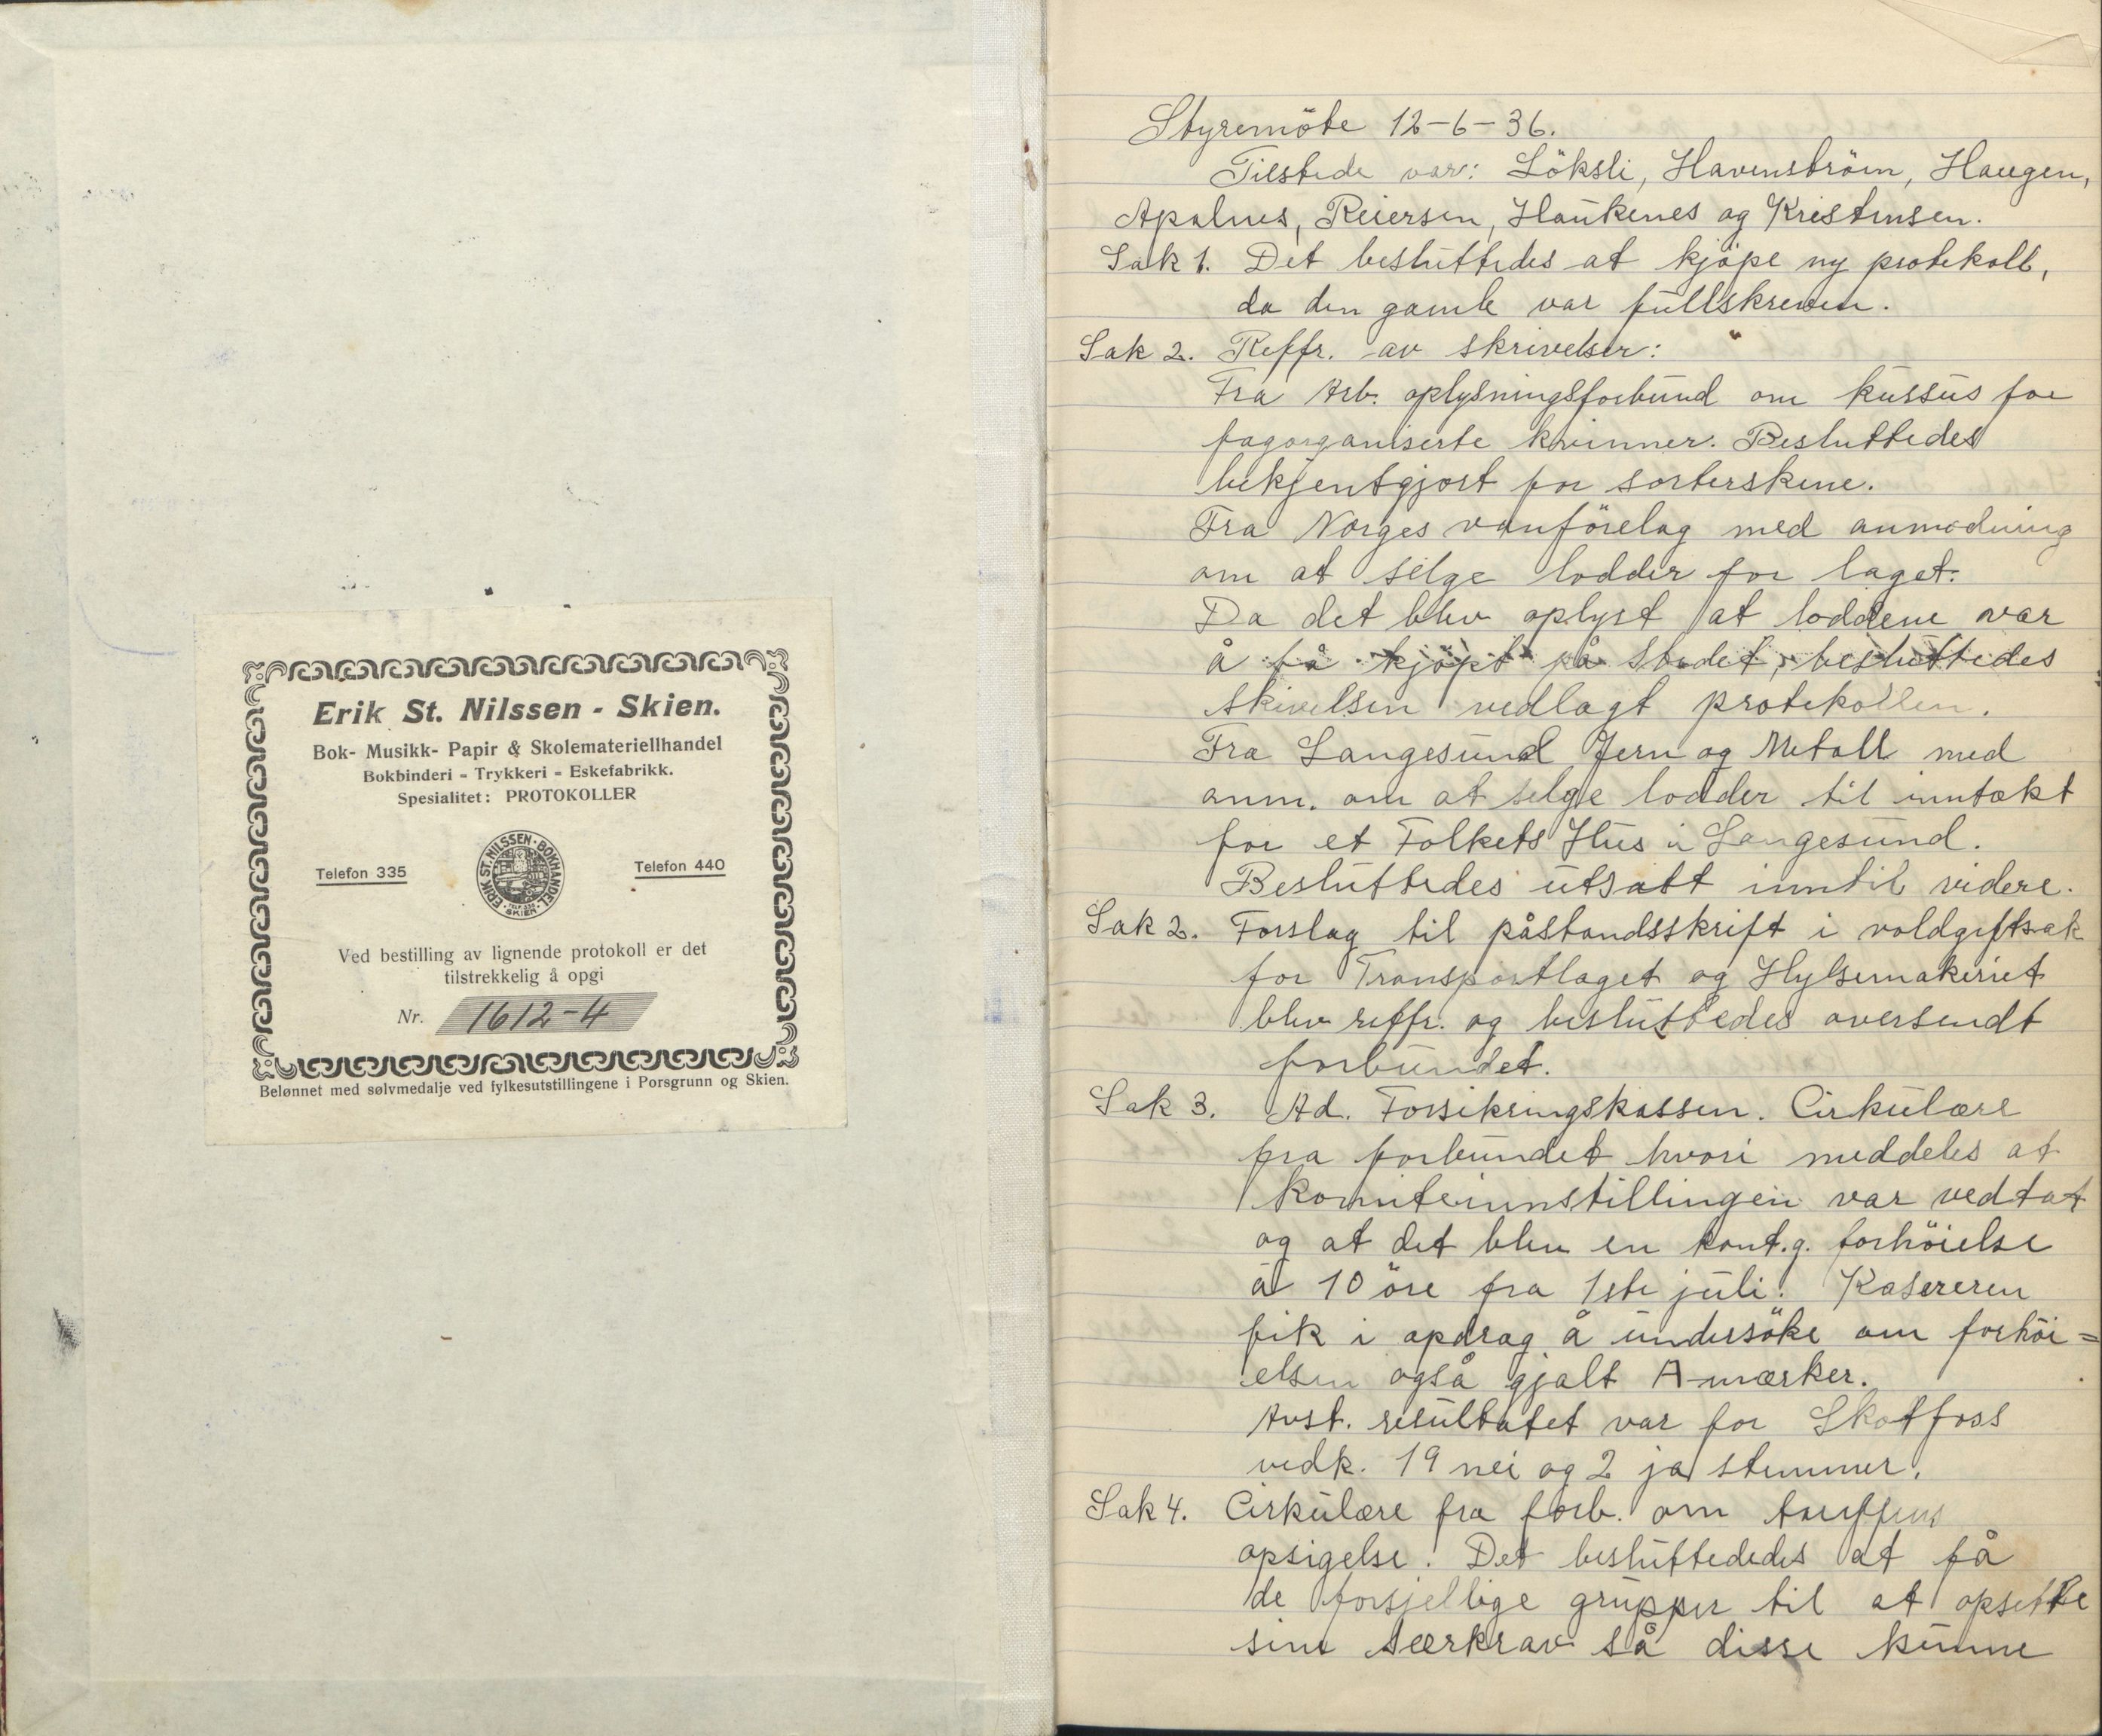 Erik St. Nilssen - Skien.
Bok- Musikk- Papir & Skolemateriellhandel
Bokbinderi - Trykkeri - Eskefabrikk.
Spesialitet: PROTOKOLLER
ERIK ST. NILSSEN · BOKHANDEL
SKIEN
Telefon 335
Telefon 440
Ved bestilling av lignende protokoll er det
tilstrekkelig å opgi
Nr. 1612-4
Belønnet med sølvmedalje ved fylkesutstillingene i Porsgrunn og Skien.
Styremöte 12-6-36.
Tilstede var: Löksli, Havenström, Haugen,
Apalnes, Reiersen, Haukenes og Kristensen.
Sak 1. Det besluttedes at kjöpe ny protekoll,
da den gamle var fullskreven.
Sak 2. Reffr. av skrivelser:
Fra Arb. oplysningsforbund om kursus for
fagorganiserte kvinner. Besluttedes
bekjentgjort for sorterskene.
Fra Norges vanförelag med anmodning
om at selge lodder for laget.
Da det blev oplyst at loddene var
å få kjöpt på Stedet, besluttedes
skivelsen vedlagt protekollen.
Fra Langesund Jern og Metall med
anm. om at selge lodder til inntækt
for et Folkets Hus i Langesund.
Besluttedes utsatt inntil videre.
Sak 2. Forslag til påstandsskrift i voldgiftsak
for Transportlaget og Hylsemakeriet
blev reffr. og besluttedes oversendt
forbundet.
Sak 3. Ad. Forsikringskassen. Cirkulære
fra forbundet hvori meddeles at
komiteinnstillingen var vedtat
og at det blev en kont.g. forhöielse
å 10 öre fra 1ste juli. Kasereren
fik i opdrag å undersöke om forhöi=
elsen også gjalt A-mærker.
Avst. resultatet var for Skotfoss
vedk. 19 nei og 2 ja stemmer.
Sak 4. Cirkulære fra forb. om
opsigelse. Det besluttededes at få
de forsjellige grupper til at opsette
sine særkrav så disse kunne